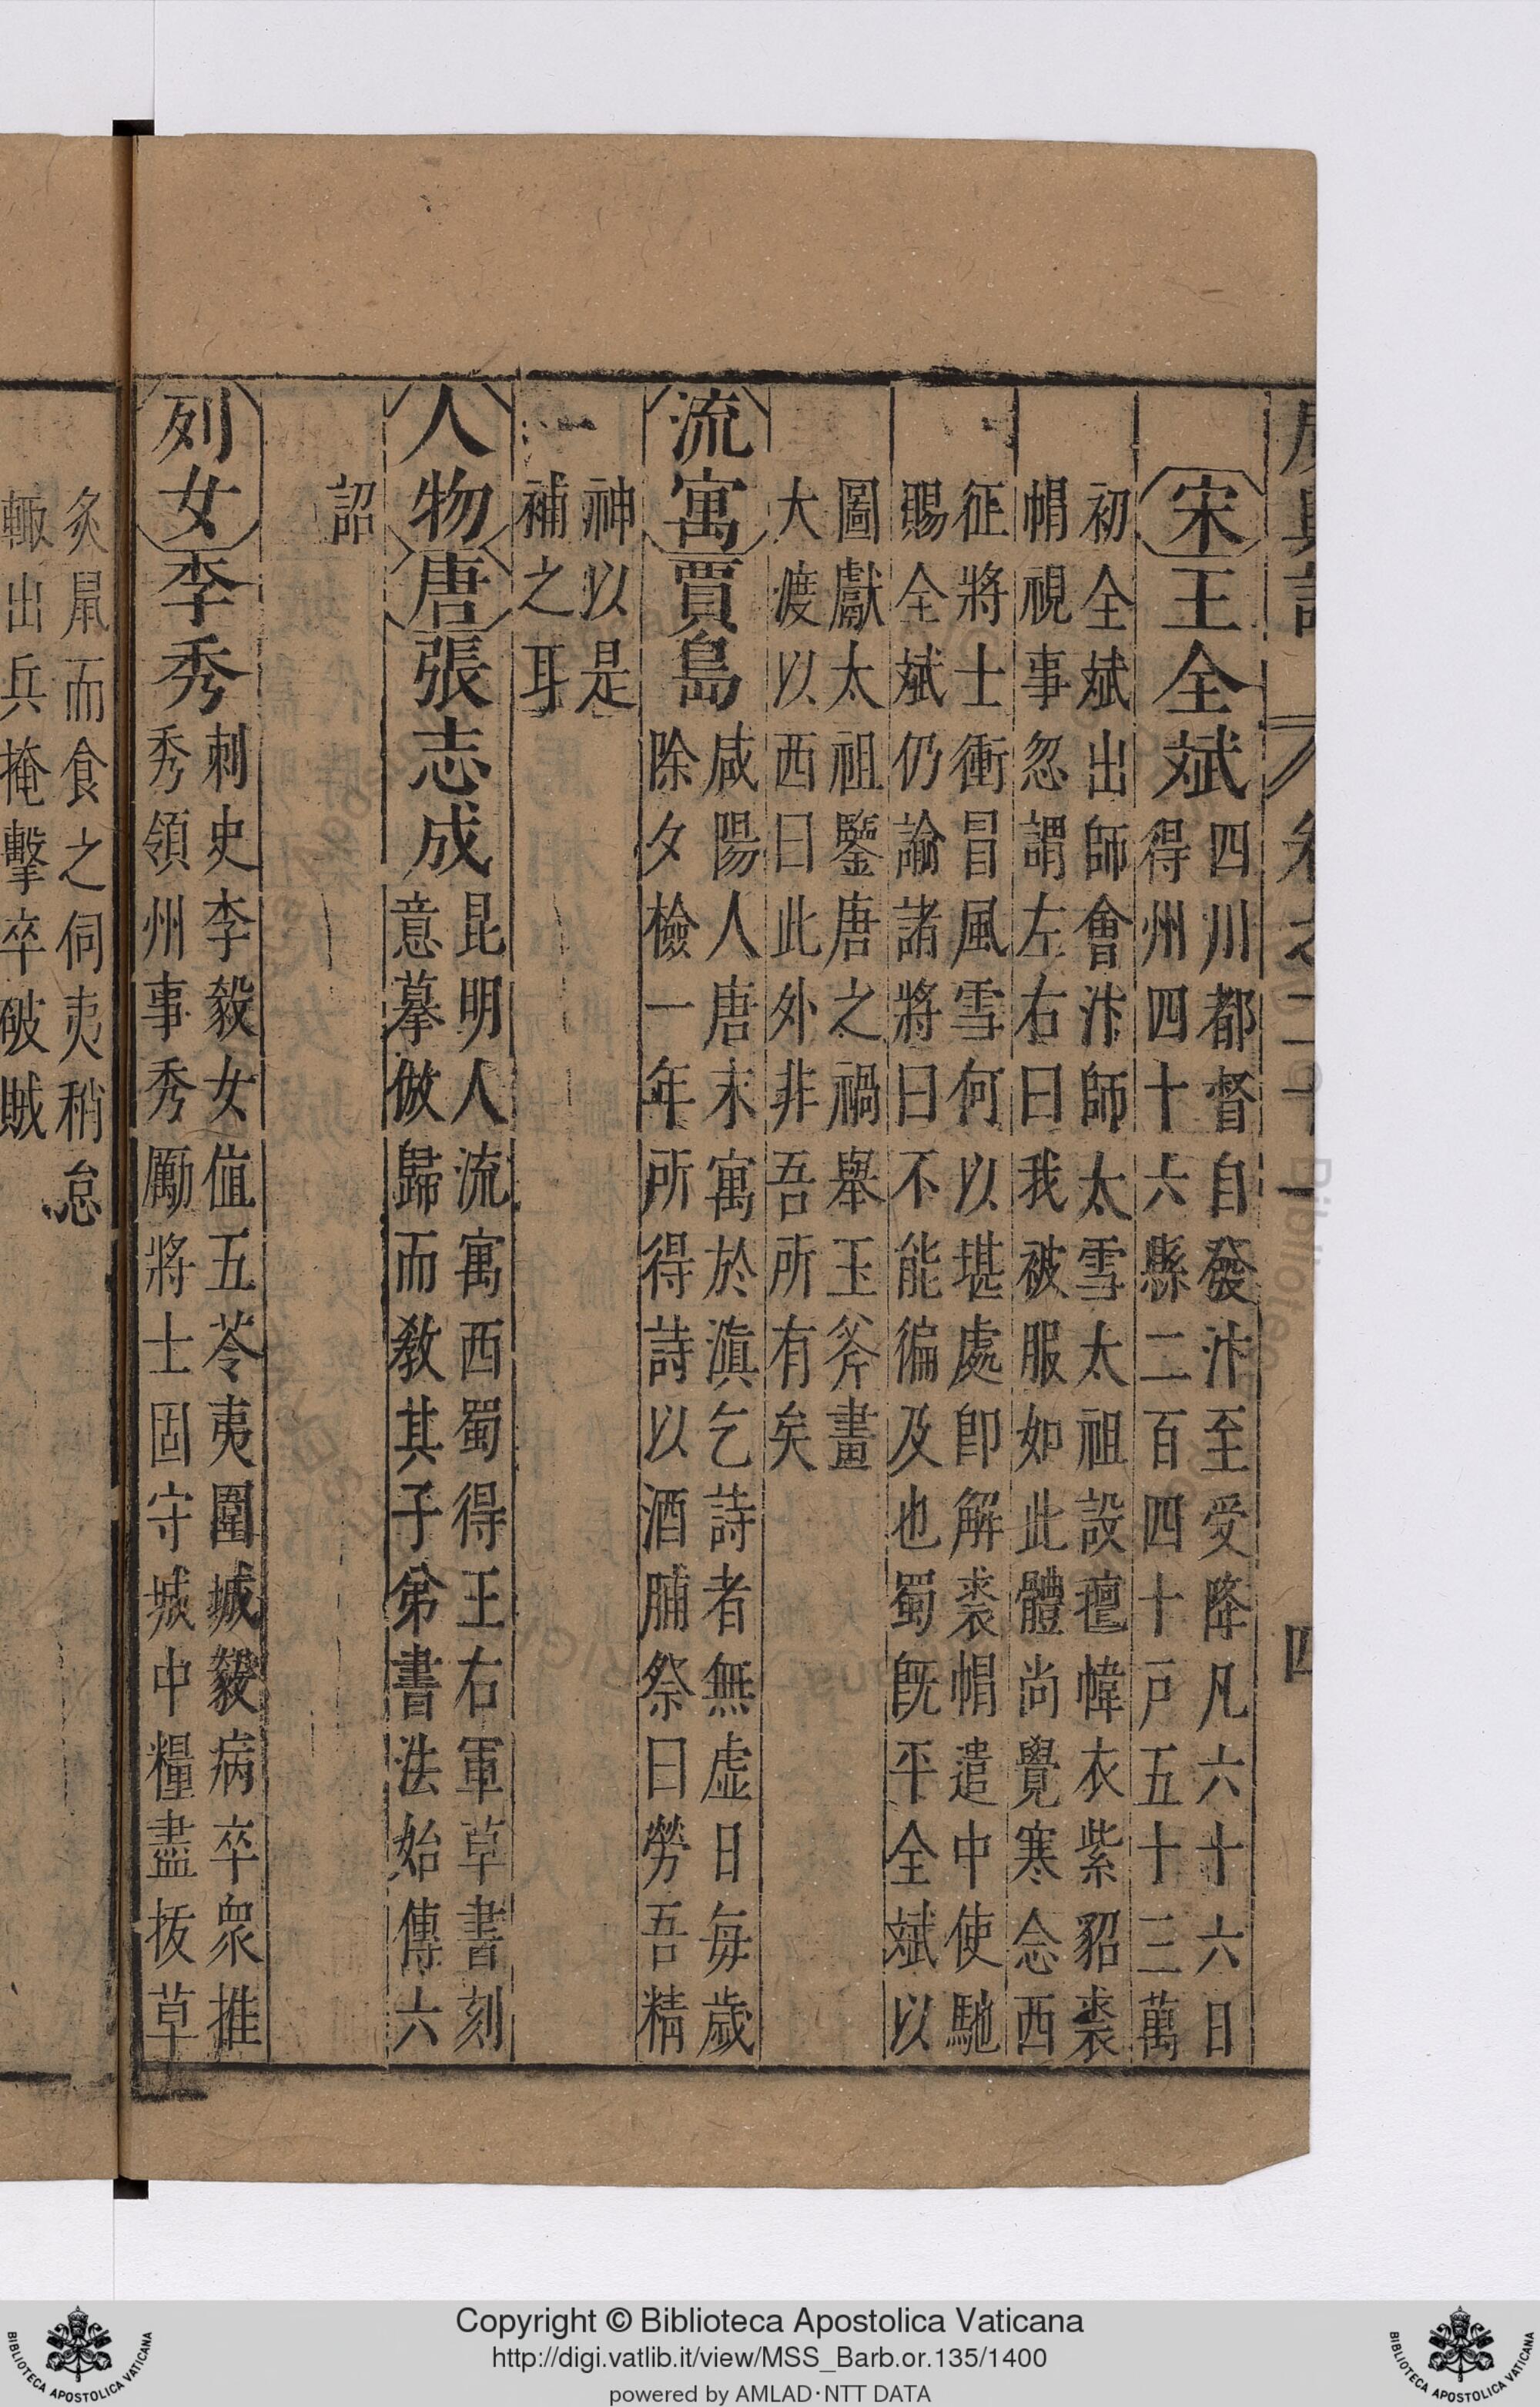 廣輿記 卷之二十一 四
宋王全斌四川都督自發汴至受降凡六十六日
得州四十六縣二百四十戸五十三萬
初全斌出師會汴師大雪太祖設氊幃衣紫貂裘
帽視事忽謂左右曰我被服如此體尚覺寒念西
征將士衝冒風雪何以堪處卽解裘帽遣中使馳
賜全斌仍諭諸將曰不能徧及也蜀旣平全斌以
圖獻太祖鑒唐之禍舉玉斧畫
大渡以西曰此外非吾所有矣
流寓賈島咸陽人唐末寓於滇乞詩者無虛日每歲
除夕檢一年所得詩以酒脯祭曰勞吾精
神以是
補之耳
人物唐張志成昆明人流寓西蜀得王右軍草書刻
意摹倣歸而敎其子弟書法始傳六
詔
列女李秀刺史李毅女値五苓夷圍城毅病卒衆推
秀領州事秀勵將士固守城中糧盡拔草
炙鼠而食之伺夷稍怠
輙出兵掩擊卒破賊
Copyright © Biblioteca Apostolica Vaticana
http://digi.vatlib.it/view/MSS_Barb.or.135/1400
powered by AMLAD·NTT DATA
BIBLIOTECA APOSTOLICA VATICANA
BIBLIOTECA APOSTOLICA VATICANA